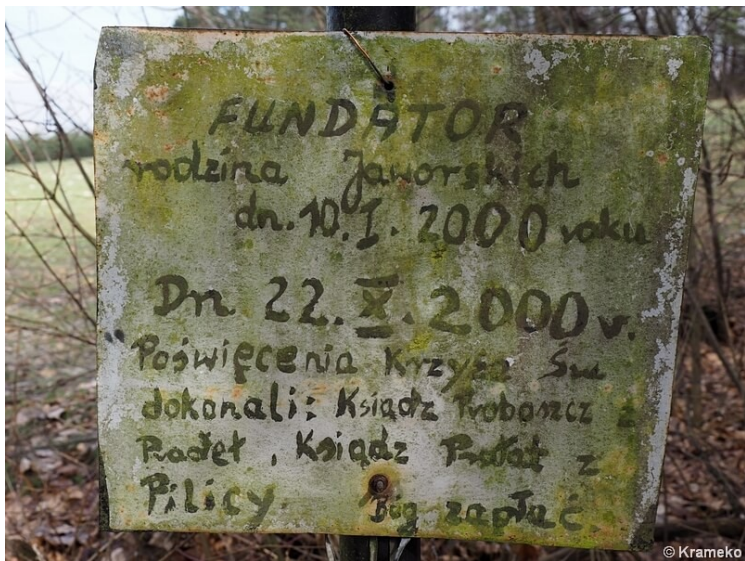 FUNDATOR
rodzina Jaworskich
dn. 10. I. 2000 roku
Dn. 22. X. 2000 r.
Poświęcenia Krzyża Św
dokonali: Ksiądz Proboszcz z
Ksiądz Prałat z
Pilicy. Bóg zapłać.
© Krameko